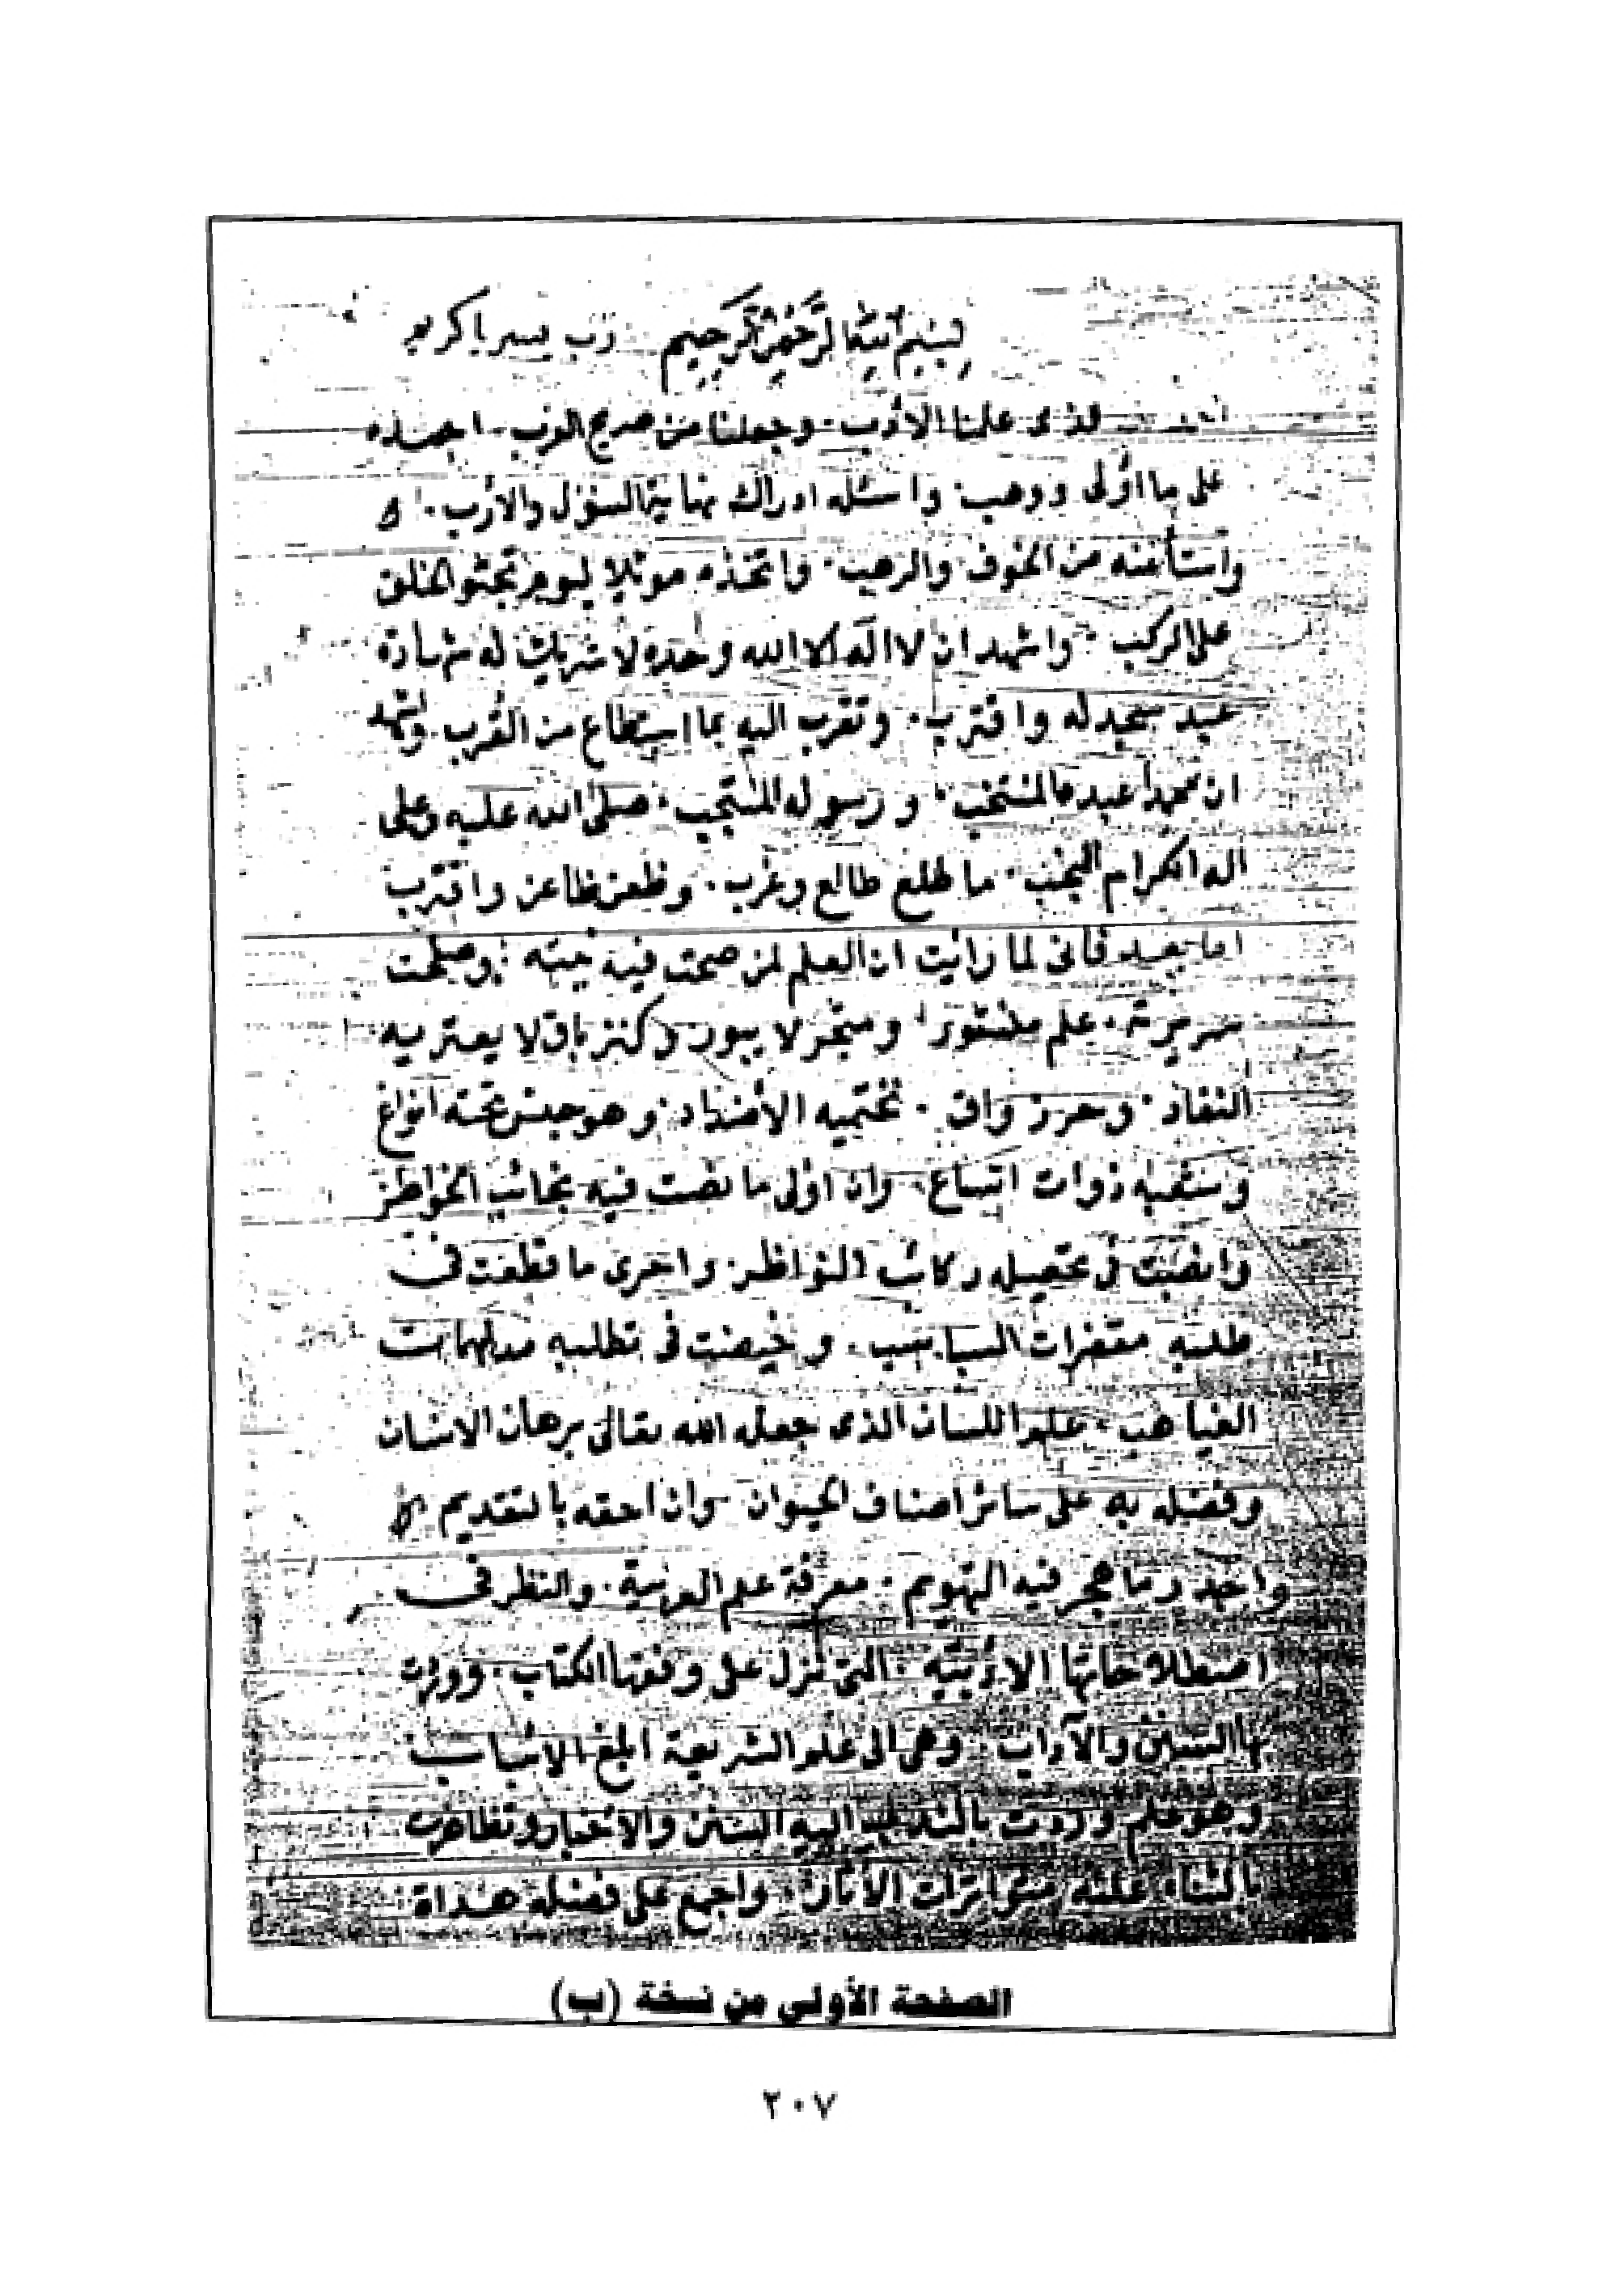 بِسْمِ اللهِ الرَّحْمٰنِ الرَّحِيمِ رب يسر يا كريم
الذى علمنا الأدب. وجعلنا من صريح العرب. احمده
على ما أولى ووهب. واسئله ادراك نهاية السؤل والأرب.
واستأمنه من الخوف والرهب. واتخذه موئلا ليوم تجثو الخلق
على الركب. واشهد ان لا اله الا الله وحده لا شريك له شهادة
عبد سجد له واقترب. وتقرب اليه بما استطاع من القرب. واشهد
ان محمداً عبده المنتخب. ورسوله المنتجب. صلى الله عليه وعلى
اله الكرام النجب. ما طلع طالع وغرب. وظعن ظاعن واقترب
اما بعد فانى لما رأيت ان العلم لمن صحت فيه نيته. وصلحت
سريرته. علم منشور. ومتجر لا يبور وكنز باق لا يعتريه
النفاد. وحرز واق. تحتميه الأضداد. وهو جنس تحته انواع
ذوات اتباع. وان اولى ما نصت فيه نجائب الخواطر
وانضيت فى تحصيله ركائب النواظر. واحرى ما قطعت فى
طلبه مقفرات السباسب. وخيضت فى تطلبه مدلهمات
الغياهب. علم اللسان الذى جعله الله تعالى برهان الانسان
وفضله به على سائر اصناف الحيوان وان احقه بالتقديم
هجر فيه التهويم. معرفة علم العربية. والنظر فى
اصطلاحاتها الادبية. التى نزل على وفقها الكتاب. ووردت
بها السنن والآداب وهى الى علم الشريعة ابلغ الاسباب
وهو علم وردت بالندب اليه السنن والاخبار وتظاهرت
بالثناء عليه متواترات الآثار. واجمع على فضله هداة
الصفحة الأولى من نسخة (ب)
٢٠٧